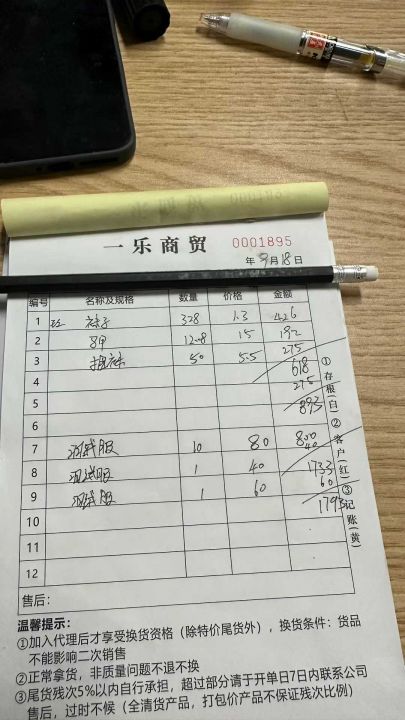 一乐商贸 0001895
年 9月18日
编号 名称及规格 数量 价格 金额
1 袜子 328 1.3 426
2 12.8 15 192
3 50 5.5 275
4 618
275
5 893
6
7 测试服 10 80 800
40
8 测试服 1 40 1733
9 测试服 1 60 60
10 1793
11
12
①存根(白)②客户(红)③记账(黄)
售后:
温馨提示:
①加入代理后才享受换货资格(除特价尾货外),换货条件:货品
不能影响二次销售
②正常拿货,非质量问题不退不换
③尾货残次5%以内自行承担,超过部分请于开单日7日内联系公司
售后,过时不候(全清货产品,打包价产品不保证残次比例)